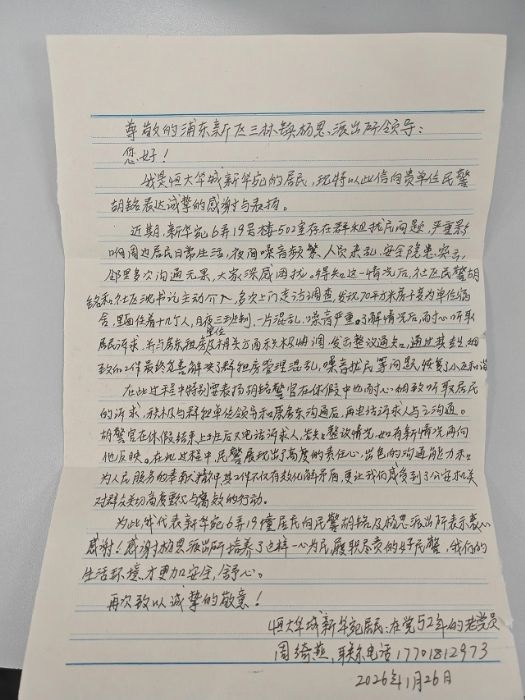 尊敬的浦东新区三林镇杨思派出所领导：
您好！
我是恒大华城新华苑的居民，现特以此信向贵单位民警
胡铭表达诚挚的感谢与表扬。
近期，新华苑6弄19号楼502室存在群租扰民问题，严重影
响周边居民日常生活，夜间噪音频繁、人员杂乱、安全隐患突出，
邻里多次沟通无果，大家深感困扰。得知这一情况后，社区民警胡
铭和社区沈书记主动介入，多次上门走访调查，发现70平方米房子变为单位宿
舍，里面住着十几个人，日夜三班制，一片混乱，噪音严重。了解情况后，耐心听取
居民诉求，并与房东租房单位及相关方面积极协调，发出整改通知。通过其专业、细
致的工作最终完善解决了群租房管理混乱，噪音扰民等问题，恢复了小区和谐
在此过程中特别需表扬胡铭警官在休假中也耐心细致听取居民
的诉求，积极与群租单位领导和原房东沟通后，再电话诉求人与之沟通。
胡警官在休假结束上班后又电话诉求人，告知整改情况，如有新情况再向
他反映。在此过程中民警展现出了高度的责任心，出色的沟通能力和
为人民服务的奉献精神其工作不仅有效化解矛盾，更让我们感受到了公安机关
对群众关切高度重视与高效的行动。
为此，我代表新华苑6弄19号居民向民警胡铭及杨思派出所表示衷心
感谢！感谢杨思派出所培养了这样一心为民，履职尽责的好民警，我们的
生活环境才更加安全，舒心。
再次致以诚挚的敬意！
恒大华城新华苑居民：在党52年的老党员
周绮燕，联系电话17701812973
2026年1月26日